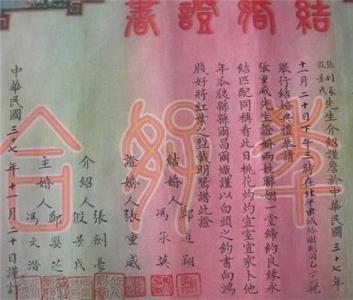 結婚證書
張劍豪
殷景戌先生介紹謹詹於中華民國三十七年
十一月二十日下午三時在北平東城
舉行結婚典禮恭請
張重威先生證婚兩姓聯姻一堂締約良緣永
結匹配同稱看此日桃花灼灼宜室宜家卜他
年瓜瓞緜緜爾昌爾熾謹以白頭之約書向鴻
牋好將紅葉之盟載明鴛譜此證
結婚人
馮承英
證婚人張重威
介紹人
張劍豪
殷景戌
主婚人
馮文潛
中華民國三十七年十一月二十日謹訂